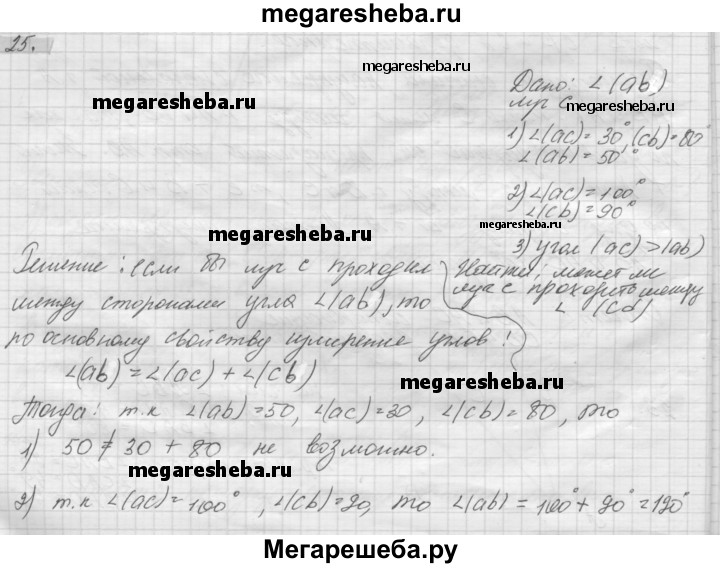 megaresheba.ru
25.
megaresheba.ru
Дано: ∠(ab)
megaresheba.ru
луч c
megaresheba.ru
1) ∠(ac) = 30° (cb) = 80°
∠(ab) = 50°
2) ∠(ac) = 100°
∠(cb) = 90°
megaresheba.ru
3) угол (ac) > (ab)
Найти, может ли
луч c проходить между
∠ (cd)
Решение: если бы луч c проходил
между сторонами угла ∠(ab), то
по основному свойству измерение углов!
∠(ab) = ∠(ac) + ∠(cb)
megaresheba.ru
Тогда: т.к ∠(ab) = 50, ∠(ac) = 30, ∠(cb) = 80, то
1) 50 ≠ 30 + 80 не возможно.
megaresheba.ru
2) т.к ∠(ac) = 100°, ∠(cb) = 90, то ∠(ab) = 100° + 90° = 190°
Мегарешеба.ру